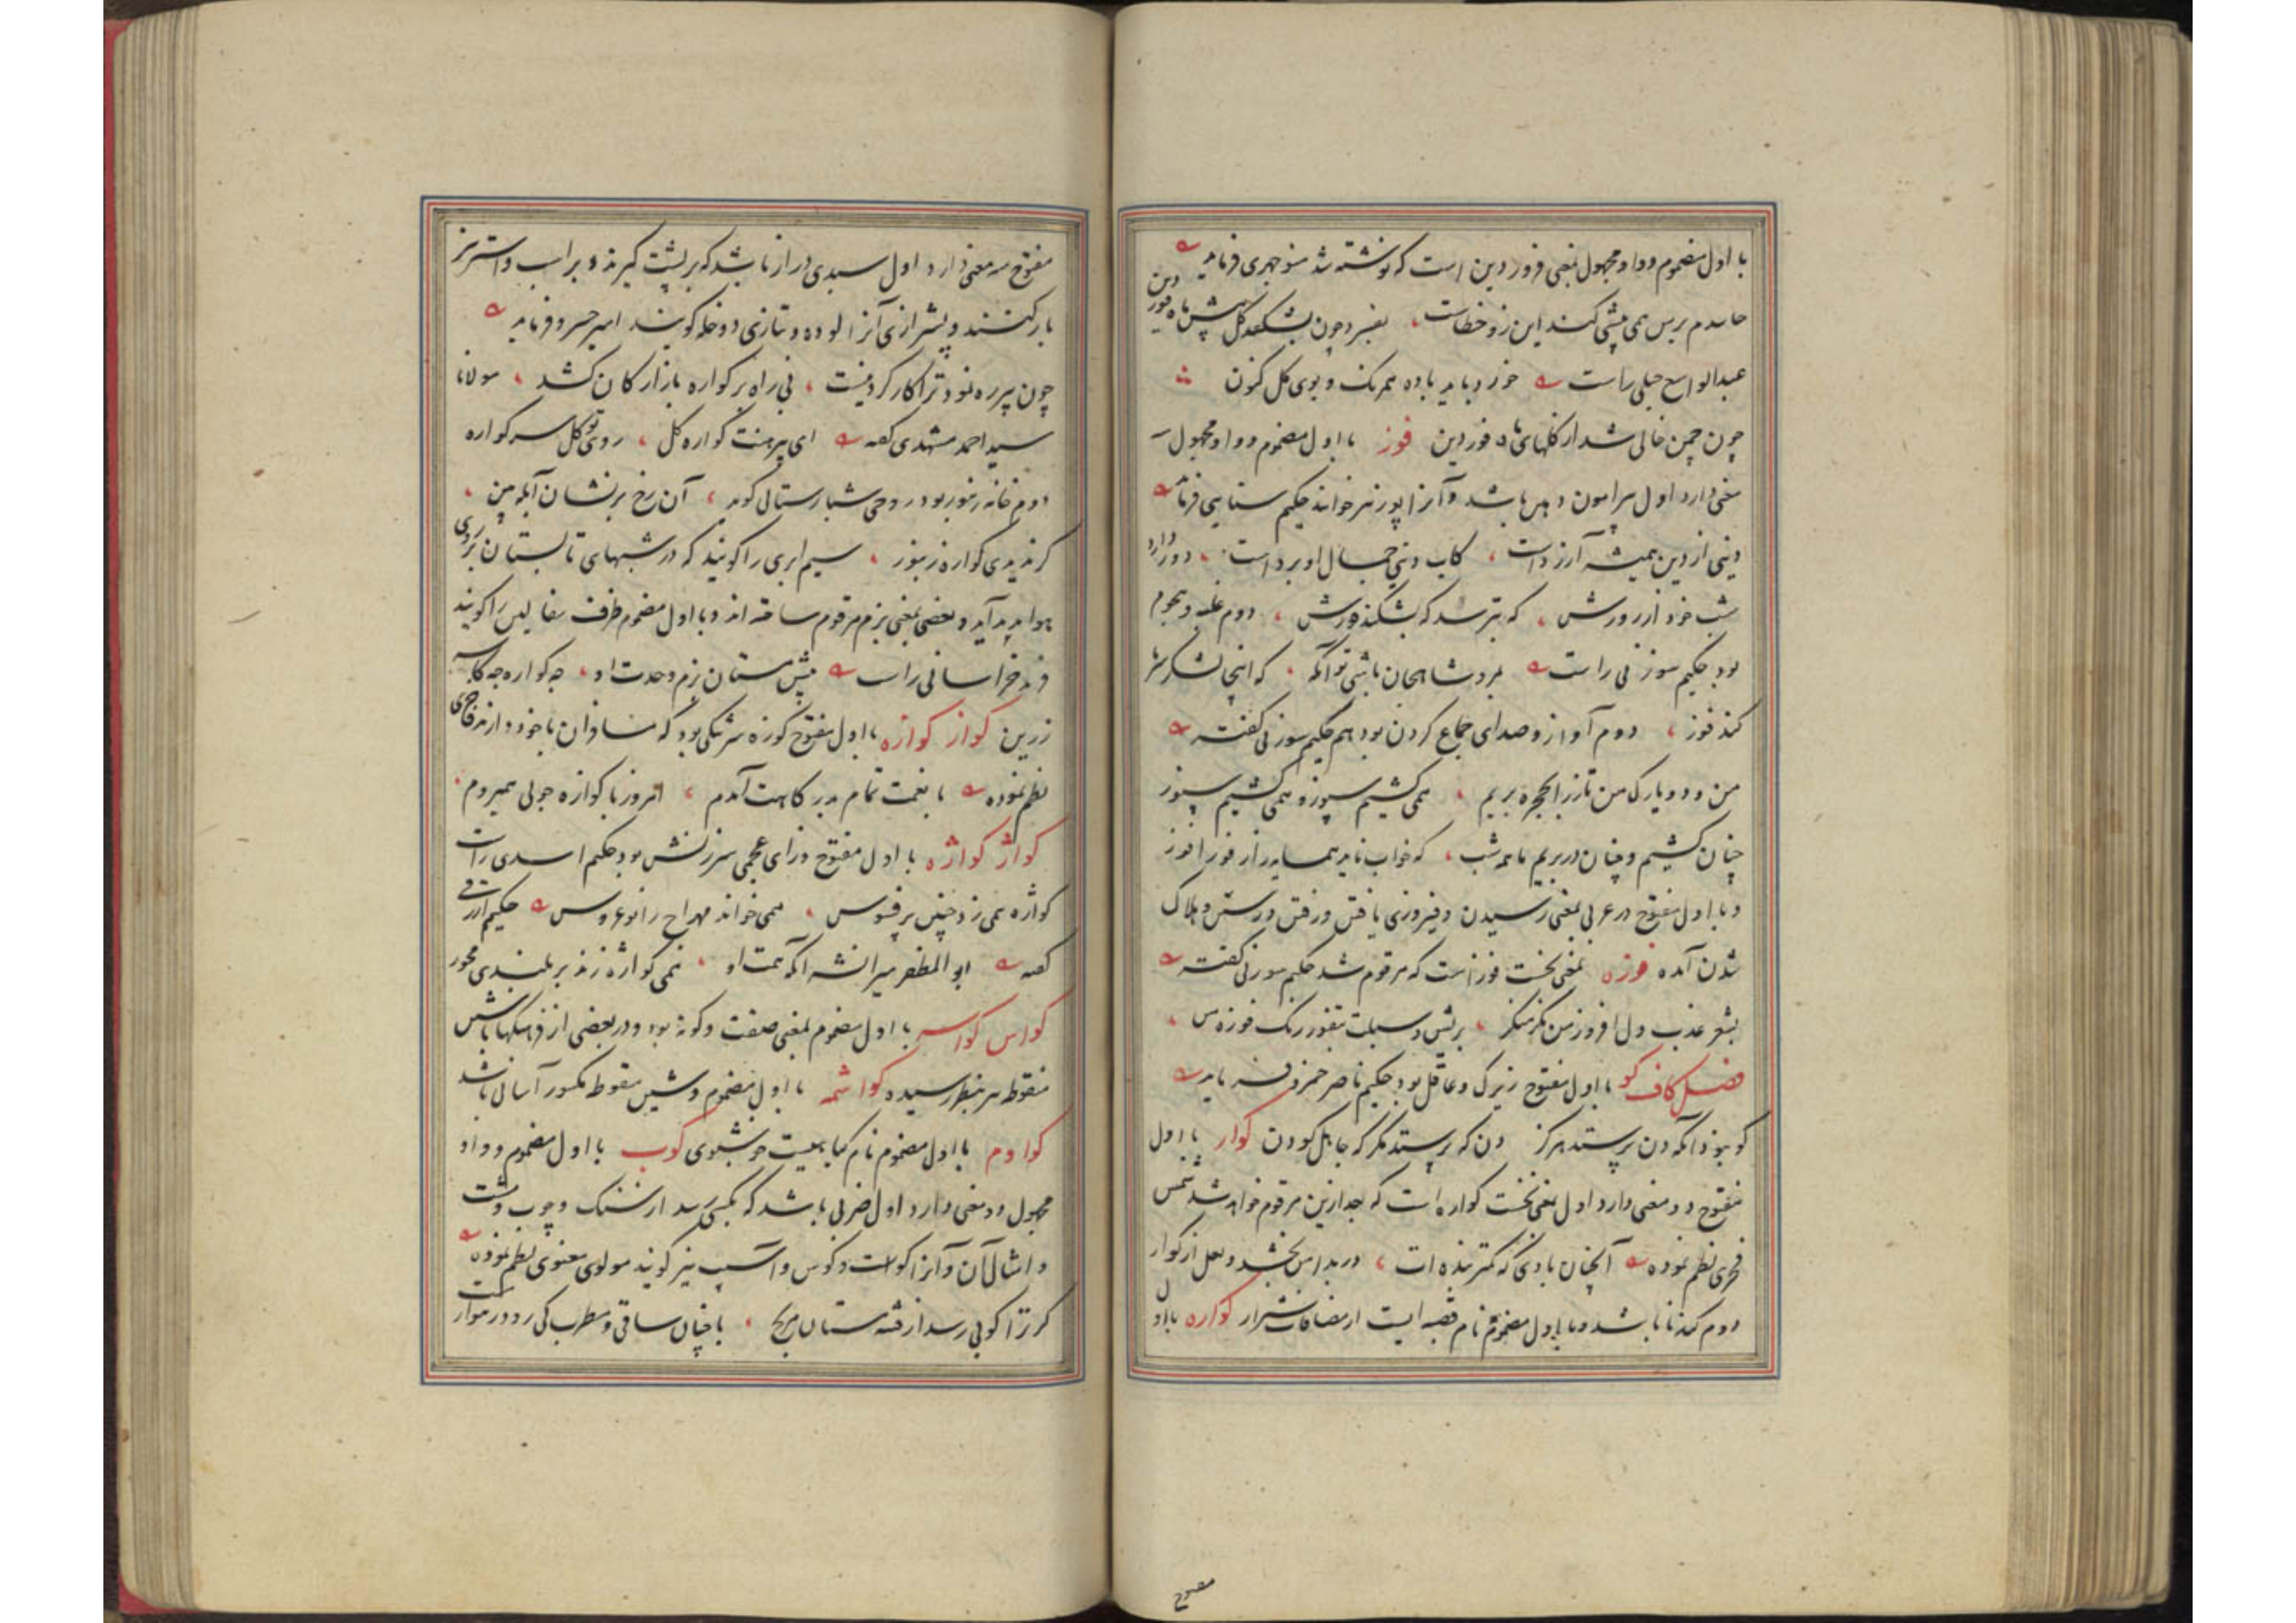 با اول مضموم و واو مجهول بمعنی فروردین است که نوشته شد منوچهری فرماید
حاسدم برمن همی پیشی کند این زو خطاست بفسرد چون بشکفد گل پیش ماه فوردین
عبدالواسع جبلی راست خورد باید باده همرنگ و بوی گل کنون
چون چمن خالی شد از گلهای ماه فوردین فوز با اول مضموم و واو مجهول
معنی دارد اول پیرامون دهن باشد و آنرا پوز نیز خوانند حکیم سنایی فرماید
دینی از دین همیشه آرزو است کاب دینی جمال او برد است
شب خود از روزش که بترسد که بشکند فوزش دوم غلبه و هجوم
بود حکیم سوزنی راست بمرو شاهجان باشی توانگه که اینجا لشکر سرما
کند فوز دوم آواز و صدای جماع کردن بود هم حکیم سوزنی گفته
من و دو یارک من تا زر بحجره بریم همی کشیم سپوز و همی کشیم سپوز
چنان کشیم و چنان در بریم تا همه شب که خواب ناید همسایه را از فوزافوز
و با اول مفتوح در عربی بمعنی رسیدن و فیروزی یافتن و رفتن و رستن و هلاک
شدن آمده فوزه بمعنی نخست فوز است که مرقوم شد حکیم سوزنی گفته
بشعر عذب دل افروز من نگر منگر بریش و سبلت و رنگ فوزه من
فصل کاف کو با اول مفتوح زیرک و عاقل بود حکیم ناصر خسرو فرماید
کو بود آنکه دون پرستد هرگز دون که پرستد مگر که جاهل کودن کوار با اول
مفتوح دو معنی دارد اول بمعنی نخست کواره است که بعد ازین مرقوم خواهد شد شمس
فخری نظم نموده آنچنان بادی که کمتر بنده ات در بدامن بخشد و لعل از کوار
دوم گندنا باشد و با اول مضموم نام قصبه ایست از مضافات شیراز کواره با اول
مفتوح
مفتوح سه معنی دارد اول سبدی دراز باشد که بر پشت گیرند و بر اسب و استر نیز
بار کنند و پیشتر ازین آنرا لوده و بتازی دوخله گویند امیر خسرو فرماید
چون پیر ره نمود ترا کار کرد نیست نی راه بر کواره بازار کان کشد مولانا
سید احمد مشهدی گفته ای پیرهنت کواره گل روی تو گل سر کواره
دوم خانه زنبور بود روحی شبارستالی گوید آن رخ پرنشان آبله بین
گر ندیدی کواره زنبور سیم ابری را گویند که در شبهای تابستان بر روی
هوا پدید آید و بعضی بمعنی بزم مرقوم ساخته اند و با اول مضموم ظرف سفالین را گویند
خراسانی راست پیش مستان بزم وحدت او چه کواره چه کاسه
زرین کواز کوازه با اول مفتوح کوزه سرتنگی بود که مسافران با خود دارند
نظم نموده با نعمت تمام بدرگاهت آمدم امروز با کوازه چوبی همیروم
کواژ کواژه با اول مفتوح و زای عجمی سرزنش بود حکیم اسدی راست
کواژه همی زد چنین بر فسوس همی خواند مهراج را نوعروس حکیم ازرقی
گفته ابوالمظفر میرانشه آنکه همت او همی کواژه زند بر بلندی محور
کواس کواسه با اول مضموم بمعنی صفت و گونه بود و در بعضی از فرهنگها با شین
منقوطه نیز بنظر رسیده کواشمه با اول مضموم و شین منقوطه مکسور آسانی باشد
کوادم با اول مضموم نام گیاهیست خوشبوی کوب با اول مضموم و واو
مجهول دو معنی دارد اول ضربی باشد که بکسی رسد از سنگ و چوب و مشت
و امثال آن و آنرا کوست و کوس و آسیب نیز گویند مولوی معنوی نظم نموده
گر ترا کوبی رسد از فتنه مستان مرنج با چنان ساقی و مطرب کی رود هموار مست